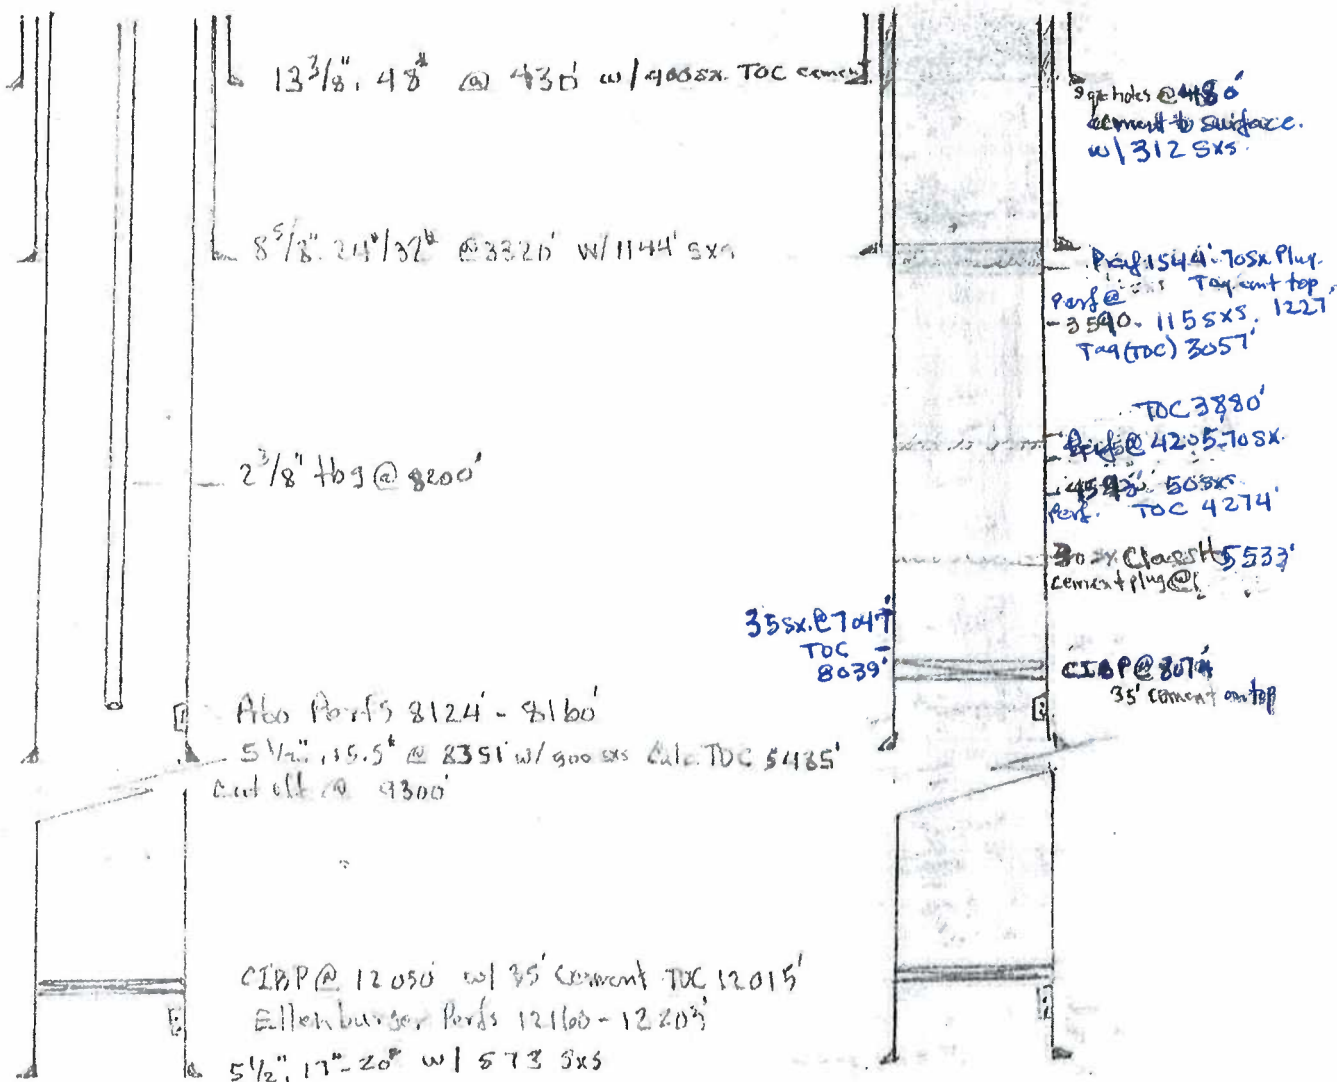 13 3/8", 48# @ 430' w/ 400 sx. TOC cement
8 5/8" 24#/32# @ 3320' w/ 1144' sxs
2 3/8" tbg @ 8200'
Abo Perfs 8124' - 8160'
5 1/2", 15.5# @ 8351' w/ 900 sxs Calc. TOC 5485'
Cut off @ 9300'
CIBP @ 12050' w/ 35' cement TOC 12015'
Ellenburger Perfs 12160 - 12203'
5 1/2", 17#-20# w/ 573 sxs
holes @ 480'
cement to surface.
w/ 312 sxs.
Perf 1544' 70sx Plug.
Tag cmt top
1227'
Perf @
3590. 115 sxs.
Tag (TOC) 3057'
TOC 3880'
Perf @ 4205 70sx.
50sxs
Perf. TOC 4274'
30 sx Class H 5533'
cement plug @
35sx. @ 7047'
TOC
8039'
CIBP @ 8074'
35' cement on top